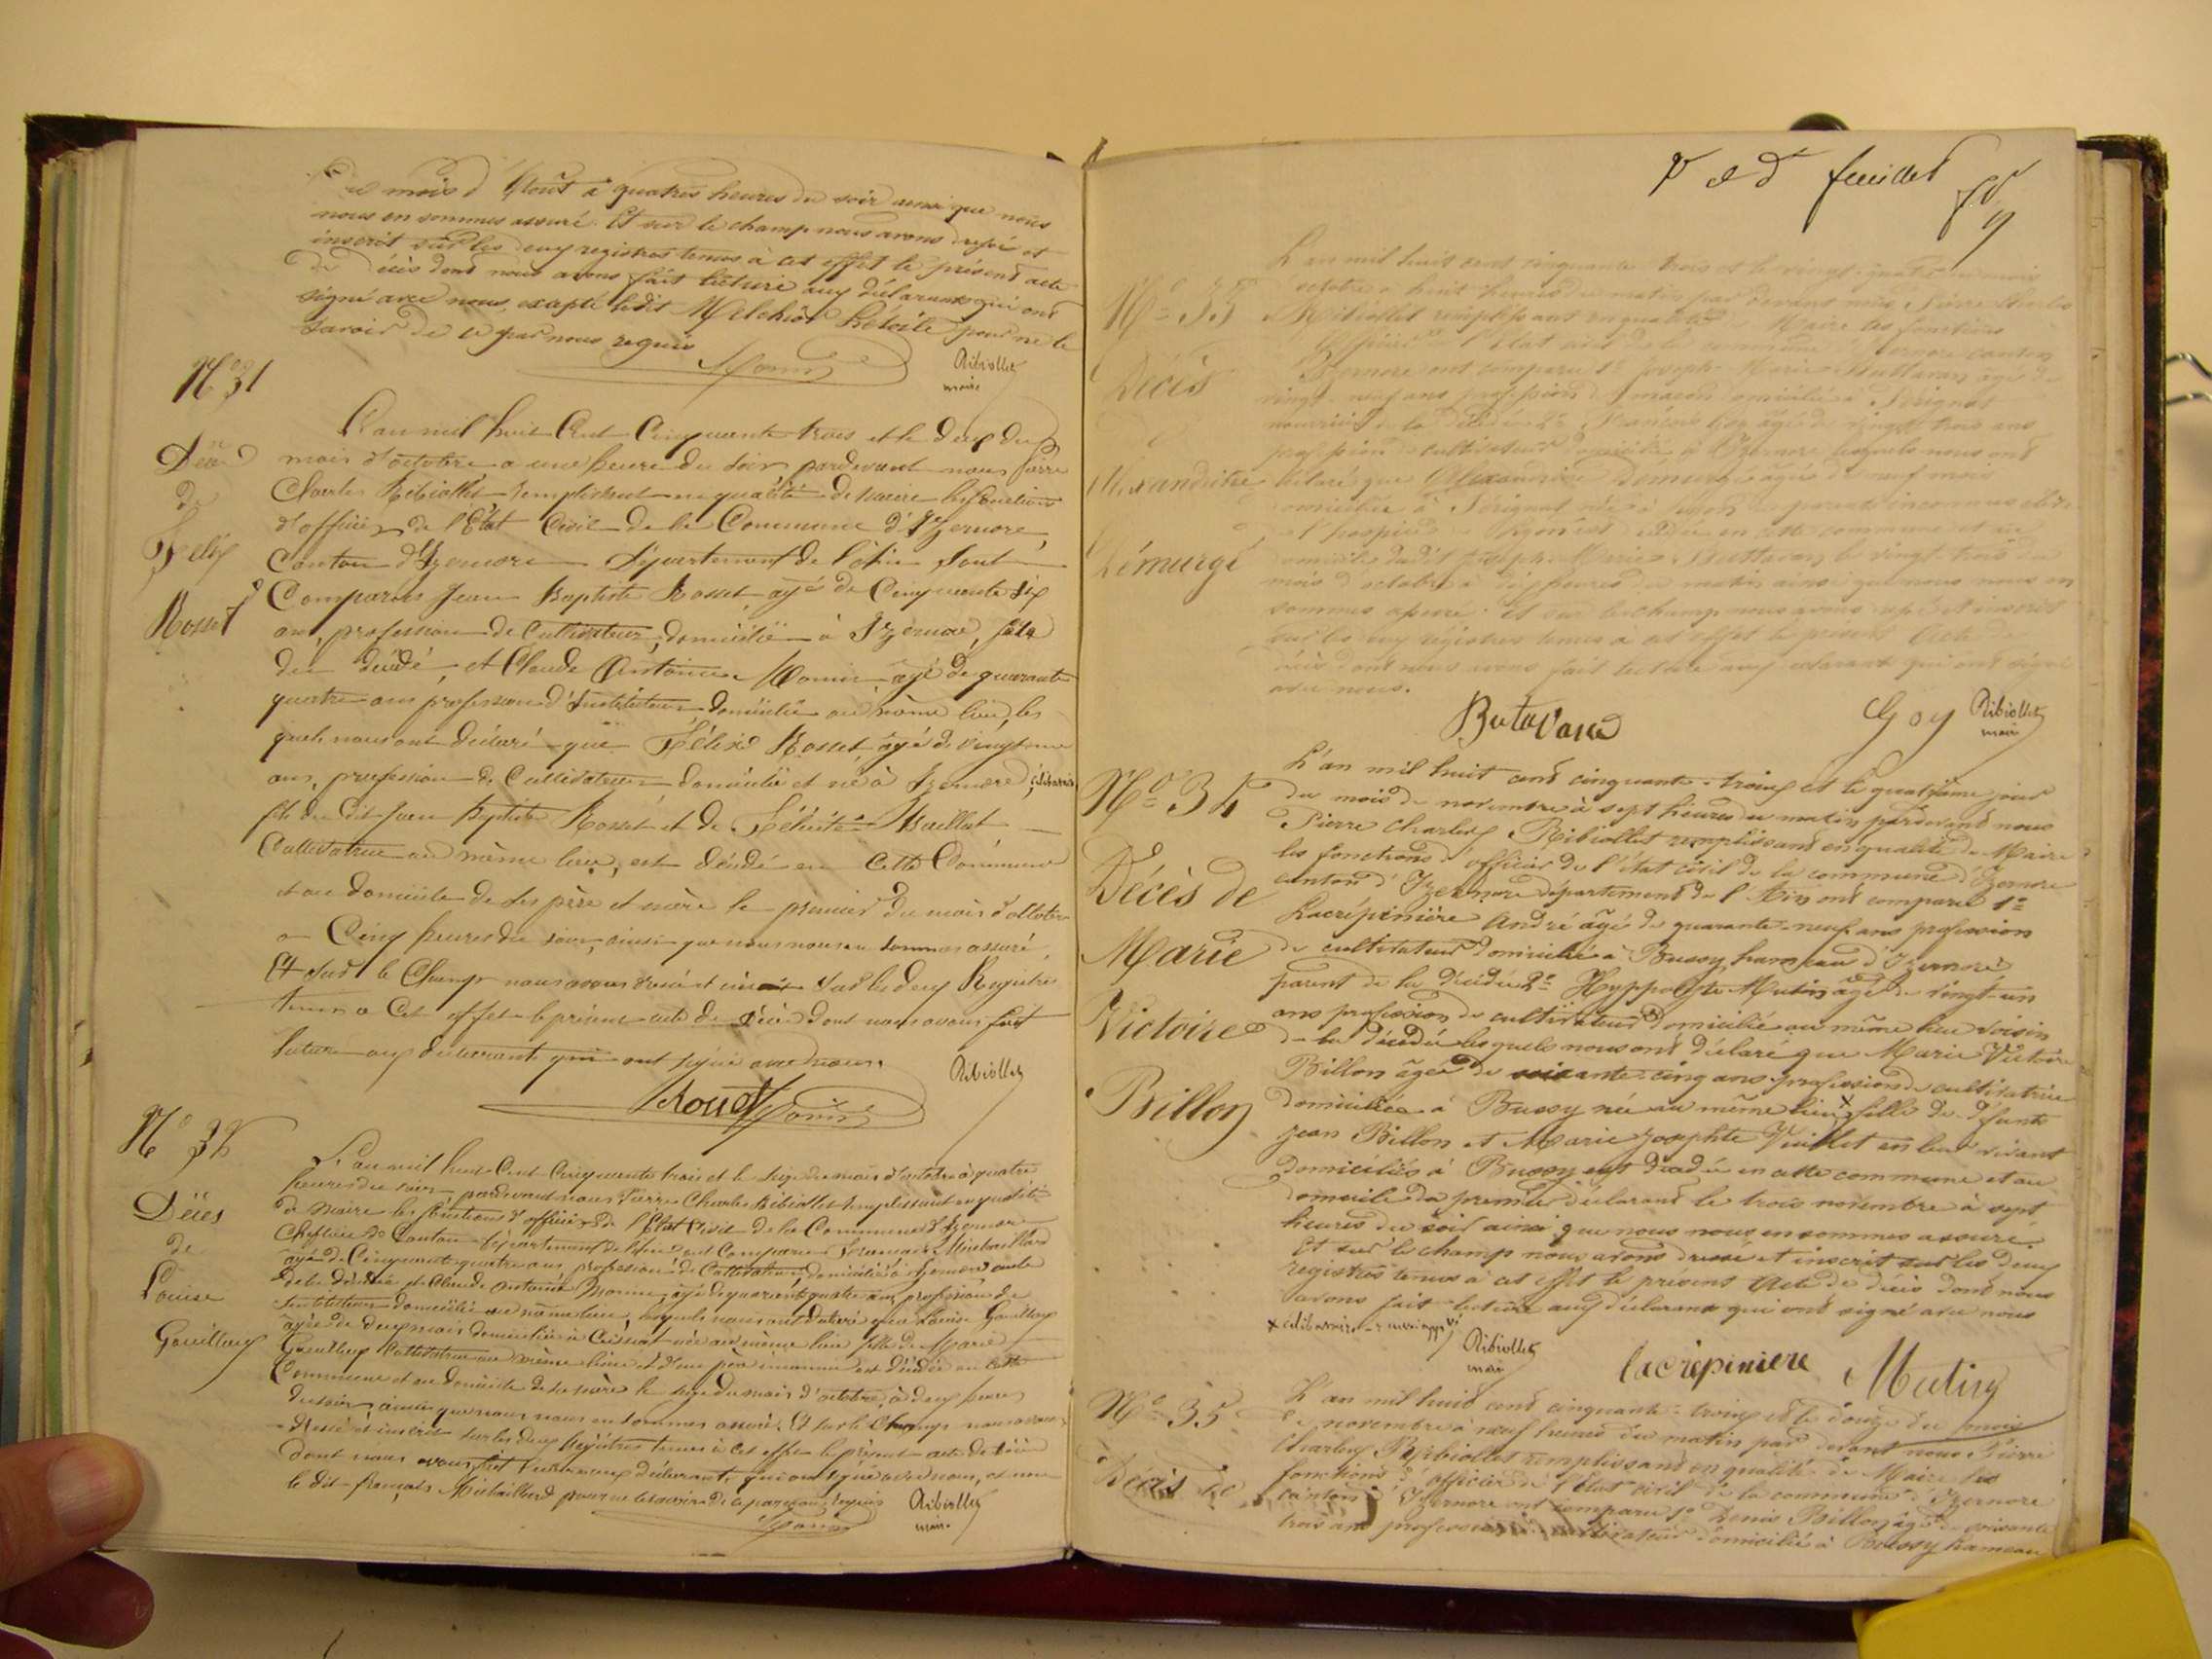 mois d'Août à quatres heures du soir ainsi que nous
nous en sommes assuré. Et sur le champ nous avons dressé et
inscrit sur les deux registres tenus à cet effet le présent acte
de décès dont nous avons fait lecture aux déclarants qui ont
signé avec nous, excepté ledit Melchior Létoile pour ne le
savoir de ce par nous requis
Monin
Ribiollet
maire
N° 31
Décès
de
Félix
Rosset
L'an mil huit Cent Cinquante trois et le deux du
mois d'octobre a une heure du soir pardevant nous Pierre
Charles Ribiollet remplissant en qualité de Maire les fonctions
d'officier de l'État Civil de la Commune d'Izernore,
Canton d'Izernore Département de l'Ain sont
Comparus Jean Baptiste Rosset, âgé de Cinquante six
ans, profession de Cultivateur, domicilié à Izernore,
du décédé, et Claude Antoine Monin âgé de quarante
quatre ans profession d'Instituteur domicilié au même lieu, les
quels nous ont déclaré que Félix Rosset, âgé de vingt
ans, profession de Cultivateur domicilié et né à Izernore, célibataire
fils du dit Jean Baptiste Rosset et de Félicité Maillet
Cultivatrice au même lieu, est décédé en Cette Commune
et au domicile de ses père et mère le premier du mois d'octobre
a Cinq heures du soir, ainsi que nous nous en sommes assuré.
Et sur le Champ nous avons dressé et inscrit sur les deux Registres
tenus a Cet effet le présent acte de décès dont nous avons fait
lecture aux déclarants qui ont signé avec nous.
Ribiollet
Rosset Monin
N° 32
Décès
de
Louise
Gouilloux
L'an mil huit Cent Cinquante trois et le six du mois d'octobre à quatre
heures du soir, pardevant nous Pierre Charles Ribiollet remplissant en qualité
de Maire les fonctions d'officier de l'État Civil de la Commune d'Izernore
Chef lieu de Canton Département de l'Ain ont Comparu François
âgé de Cinquante quatre ans, profession de Cultivateur domicilié à Izernore
de la décédée et Claude Antoine Monin, âgé de quarante quatre ans, profession de
Instituteur domicilié au même lieu, lesquels nous ont déclaré que Louise Gouilloux
âgée de deux mois domiciliée à Ceissiat née au même lieu fille de Marie
Gouilloux Cultivatrice au même lieu et d'un père inconnu est décédée en Cette
Commune et au domicile de sa mère le six du mois d'octobre à deux heures
du soir, ainsi que nous nous en sommes assuré. Et sur le Champ nous avons
dressé et inscrit sur les deux Registres tenus à cet effet le présent acte de décès
dont nous avons fait lecture aux déclarants, qui ont signé avec nous,
le dit François pour ne le savoir de ce par nous requis
Ribiollet
maire
Monin
feuillet
9
N° 33
Décès
Alexandrine
Démurgé
L'an mil huit cent cinquante trois et le vingt quatre du mois
octobre à huit heures du matin par devant nous Pierre Charles
Ribiollet remplissant en qualité de Maire les fonctions
d'officier de l'Etat civil de la commune d'Izernore canton
d'Izernore ont comparu 1° Joseph Marie Buttavan âgé de
vingt neuf ans profession de maçon domicilié à Sérignat
nourricier de la décédée 2° François Goy âgé de vingt trois ans
profession de cultivateur domicilié à Izernore lesquels nous ont
déclaré que Alexandrine Démurgé âgée de neuf mois
domiciliée à Sérignat née à Lyon de parents inconnus
l'hospice de Lyon est décédée en cette commune et au
domicile dudit Joseph Marie Buttavan le vingt trois du
mois d'octobre à dix heures du matin ainsi que nous nous en
sommes assuré. Et sur le champ nous avons dressé et inscrit
sur les deux registres tenus à cet effet le présent Acte de
décès dont nous avons fait lecture aux déclarants qui ont signé
avec nous.
Butavand Goy Ribiollet
maire
N° 34
Décès de
Marie
Victoire
Billon
L'an mil huit cent cinquante-trois et le quatrième jour
du mois de novembre à sept heures du matin pardevant nous
Pierre Charles Ribiollet remplissant en qualité de Maire
les fonctions d'officier de l'état civil de la commune d'Izernore
canton d'Izernore département de l'Ain ont comparu 1°
Lacrépinière André âgé de quarante-neuf ans profession
de cultivateur domicilié à Bussy hameau d'Izernore
parent de la décédée 2° Hyppolyte Mutin âgé de vingt-un
ans profession de cultivateur domicilié au même lieu voisin
de la décédée lesquels nous ont déclaré que Marie Victoire
Billon âgée de soixante-cinq ans profession de cultivatrice
domiciliée à Bussy née au même lieu x fille de défunts
Jean Billon et Marie Josephte Vuillet en leur vivant
domiciliés à Bussy est décédée en cette commune et au
domicile du premier déclarant le trois novembre à sept
heures du soir ainsi que nous nous en sommes assuré.
Et sur le champ nous avons dressé et inscrit sur les deux
registres tenus à cet effet le présent Acte de décès dont nous
avons fait lecture aux déclarants qui ont signé avec nous
x célibataire
Ribiollet
maire
lacrépiniere Mutin
N° 35
Décès de
L'an mil huit cent cinquante-trois et le douze du mois
de novembre à neuf heures du matin par devant nous Pierre
Charles Ribiollet remplissant en qualité de Maire les
fonctions d'officier de l'Etat civil de la commune d'Izernore
canton d'Izernore ont comparu 1° Denis Billon âgé de soixante
trois ans profession de cultivateur domicilié à Bussy hameau